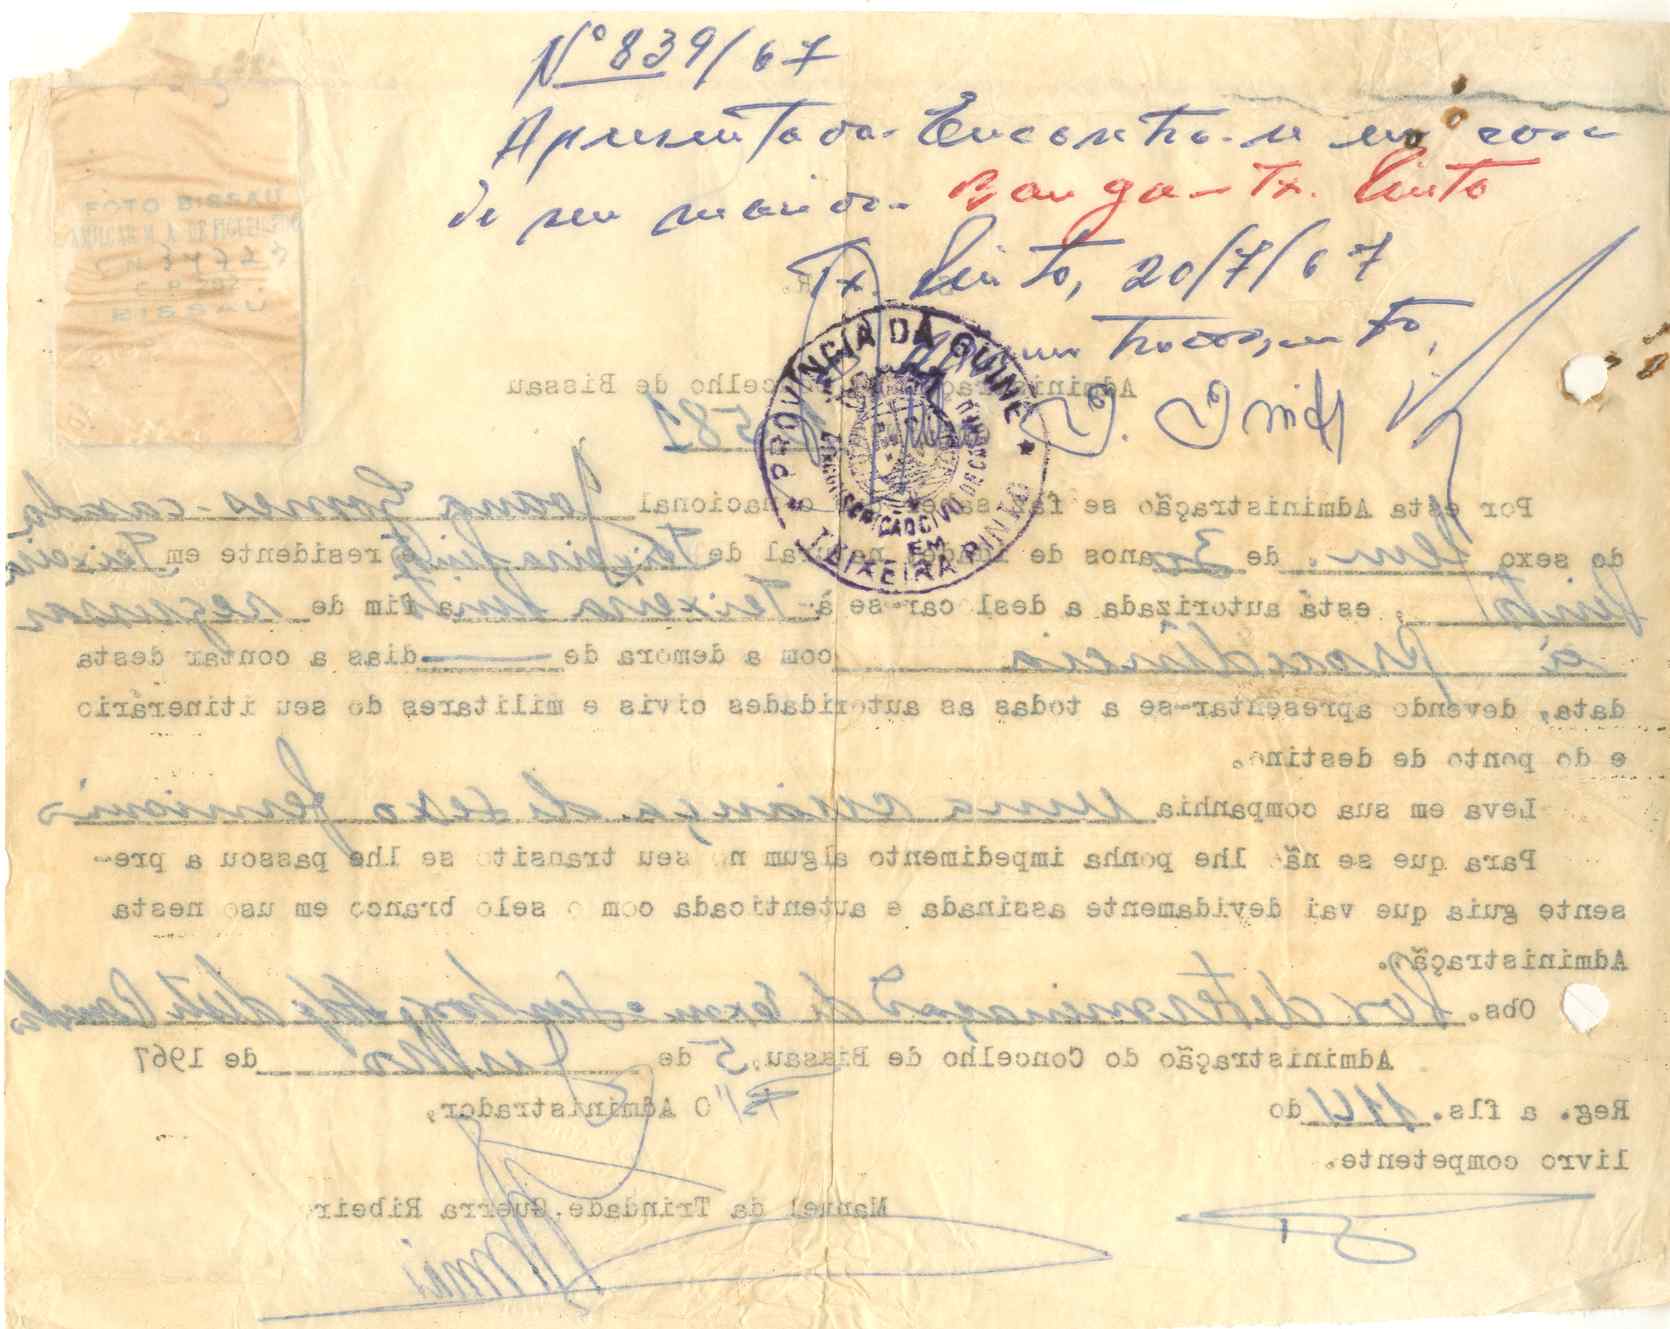 Nº 839/67
Apresentada. Encontra-se em casa
de seu marido. Banga - Tx. Pinto
Tx. Pinto, 20/7/67
PROVÍNCIA DA GUINÉ
EM
TEIXEIRA PINTO
FOTO BISSAU
BISSAU
R.
Administração do Concelho de Bissau
581
Por esta Administração se faz saber que o nacional Joana Gomes - casada
do sexo fem. de 30 anos de idade, natural de Teixeira Pinto e residente em Teixeira
Pinto, está autorizada a deslocar-se à Teixeira Pinto a fim de regressar
à procedência com a demora de — dias a contar desta
data, devendo apresentar-se a todas as autoridades civis e militares do seu itinerário
e do ponto de destino.
Leva em sua companhia uma criança do sexo femenino
Para que se não lhe ponha impedimento algum no seu transito se lhe passou a pre-
sente guia que vai devidamente assinada e autenticada com o selo branco em uso nesta
Administração.
Obs. Por determinação do Exmo Senhor deste Concelho
Administração do Concelho de Bissau, 5 de Julho de 1967
O Administrador,
Reg. a fls. 114 do
livro competente.
Manuel da Trindade Guerra Ribeiro